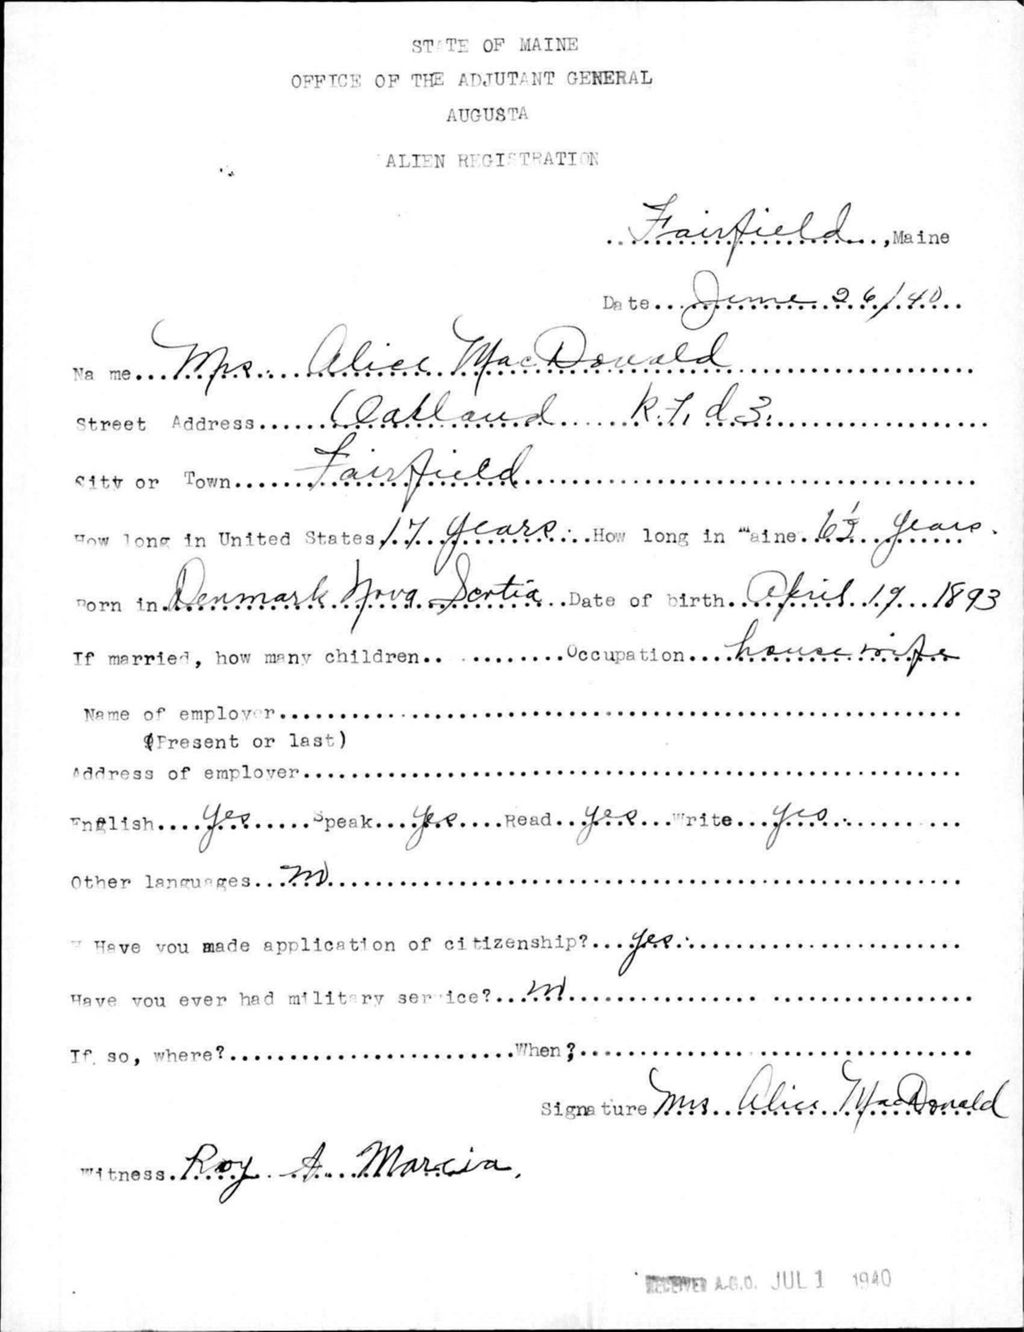 STATE OF MAINE
OFFICE OF THE ADJUTANT GENERAL
AUGUSTA
ALIEN REGISTRATION
Fairfield, Maine
Date June 26/40
Name Mrs. Alice MacDonald
Street Address Oakland R.F.d 3.
City or Town Fairfield
How long in United States 17 years. How long in Maine 6½ years.
Born in Denmark Nova Scotia Date of birth April 19 1893
If married, how many children Occupation housewife
Name of employer
(Present or last)
Address of employer
English yes Speak yes Read yes Write yes
Other languages no
Have you made application of citizenship? yes.
Have you ever had military service? no
If so, where? When?
Signature Mrs. Alice MacDonald
Witness Roy A. Marcia.
RECEIVED A.G.O. JUL 1 1940